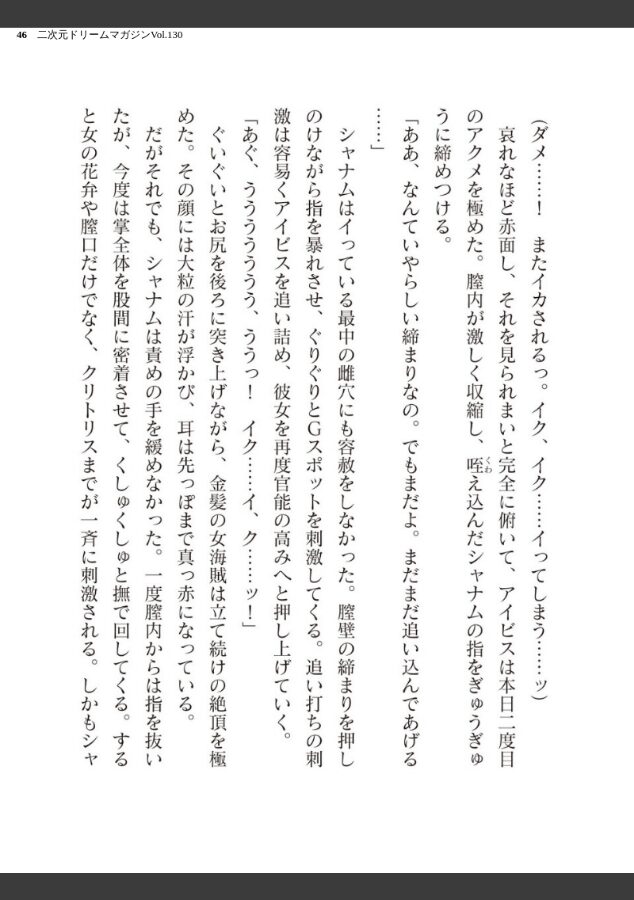 46 二次元ドリームマガジンVol.130
(ダメ……！　またイカされるっ。イク、イク……イってしまう……ッ)
　哀れなほど赤面し、それを見られまいと完全に俯いて、アイビスは本日二度目
のアクメを極めた。膣内が激しく収縮し、咥え込んだシャナムの指をぎゅうぎゅ
うに締めつける。
「ああ、なんていやらしい締まりなの。でもまだよ。まだまだ追い込んであげる
……」
　シャナムはイっている最中の雌穴にも容赦をしなかった。膣壁の締まりを押し
のけながら指を暴れさせ、ぐりぐりとGスポットを刺激してくる。追い打ちの刺
激は容易くアイビスを追い詰め、彼女を再度官能の高みへと押し上げていく。
「あぐ、うううううう、ううっ！　イク……イ、ク……ッ！」
　ぐいぐいとお尻を後ろに突き上げながら、金髪の女海賊は立て続けの絶頂を極
めた。その顔には大粒の汗が浮かび、耳は先っぽまで真っ赤になっている。
　だがそれでも、シャナムは責めの手を緩めなかった。一度膣内からは指を抜い
たが、今度は掌全体を股間に密着させて、くしゅくしゅと撫で回してくる。する
と女の花弁や膣口だけでなく、クリトリスまでが一斉に刺激される。しかもシャ